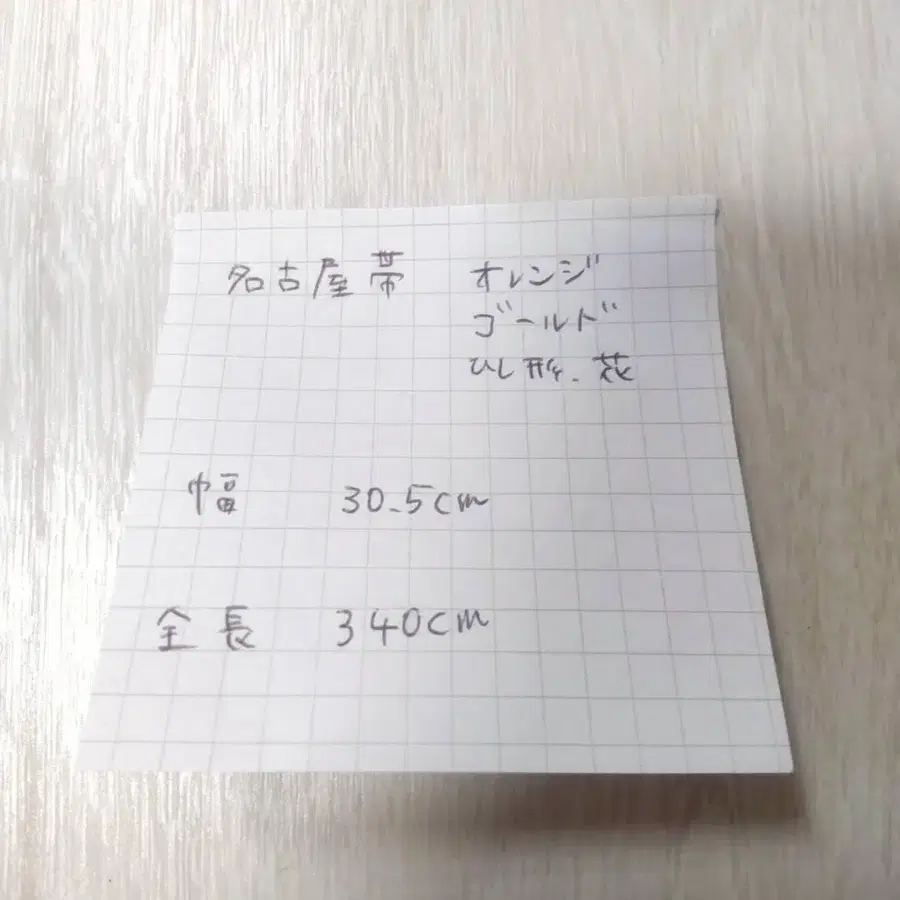 名古屋帯 オレンジ
ゴールド
ひし形、花
幅 30.5cm
全長 340cm